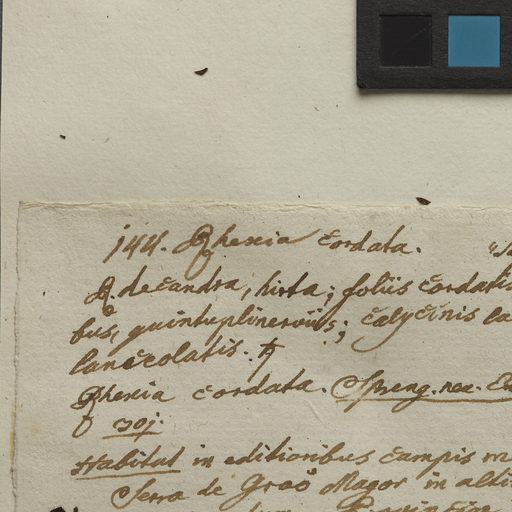 144. Rhexia cordata.
R. decandra, hirta; foliis cordatis
bus, quintuplinerviis; calycinis la
lanceolatis. ♄
Rhexia cordata. Spreng. neu. E
Habitat in editioribus campis m
Serra de Grao Magor in alti